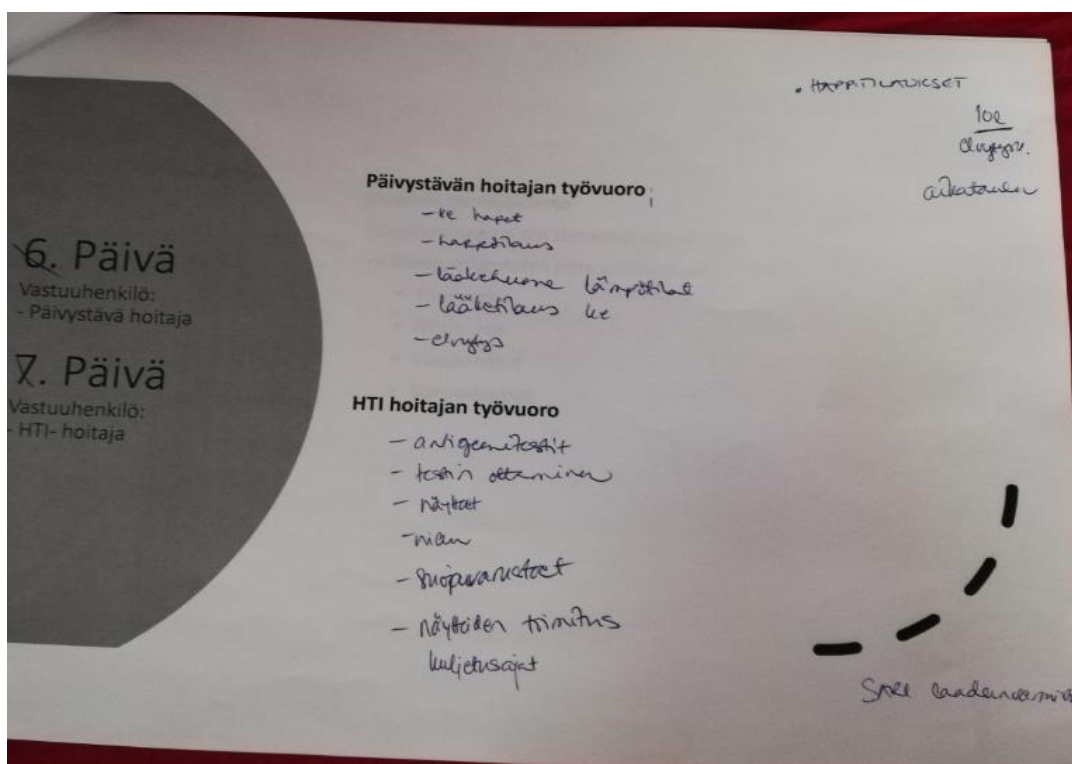 6. Päivä
Vastuuhenkilö:
- Päivystävä hoitaja
7. Päivä
Vastuuhenkilö:
- HTI- hoitaja
Päivystävän hoitajan työvuoro
- ke hapet
- happitilaus
- lääkehuone lämpötilat
- lääketilaus ke
- elvytys
HTI hoitajan työvuoro
- antigeenitestit
- testin ottaminen
- näytteet
- suojavarusteet
- näytteiden toimitus
kuljetusajat
• HAPPITILAUKSET
elvytys